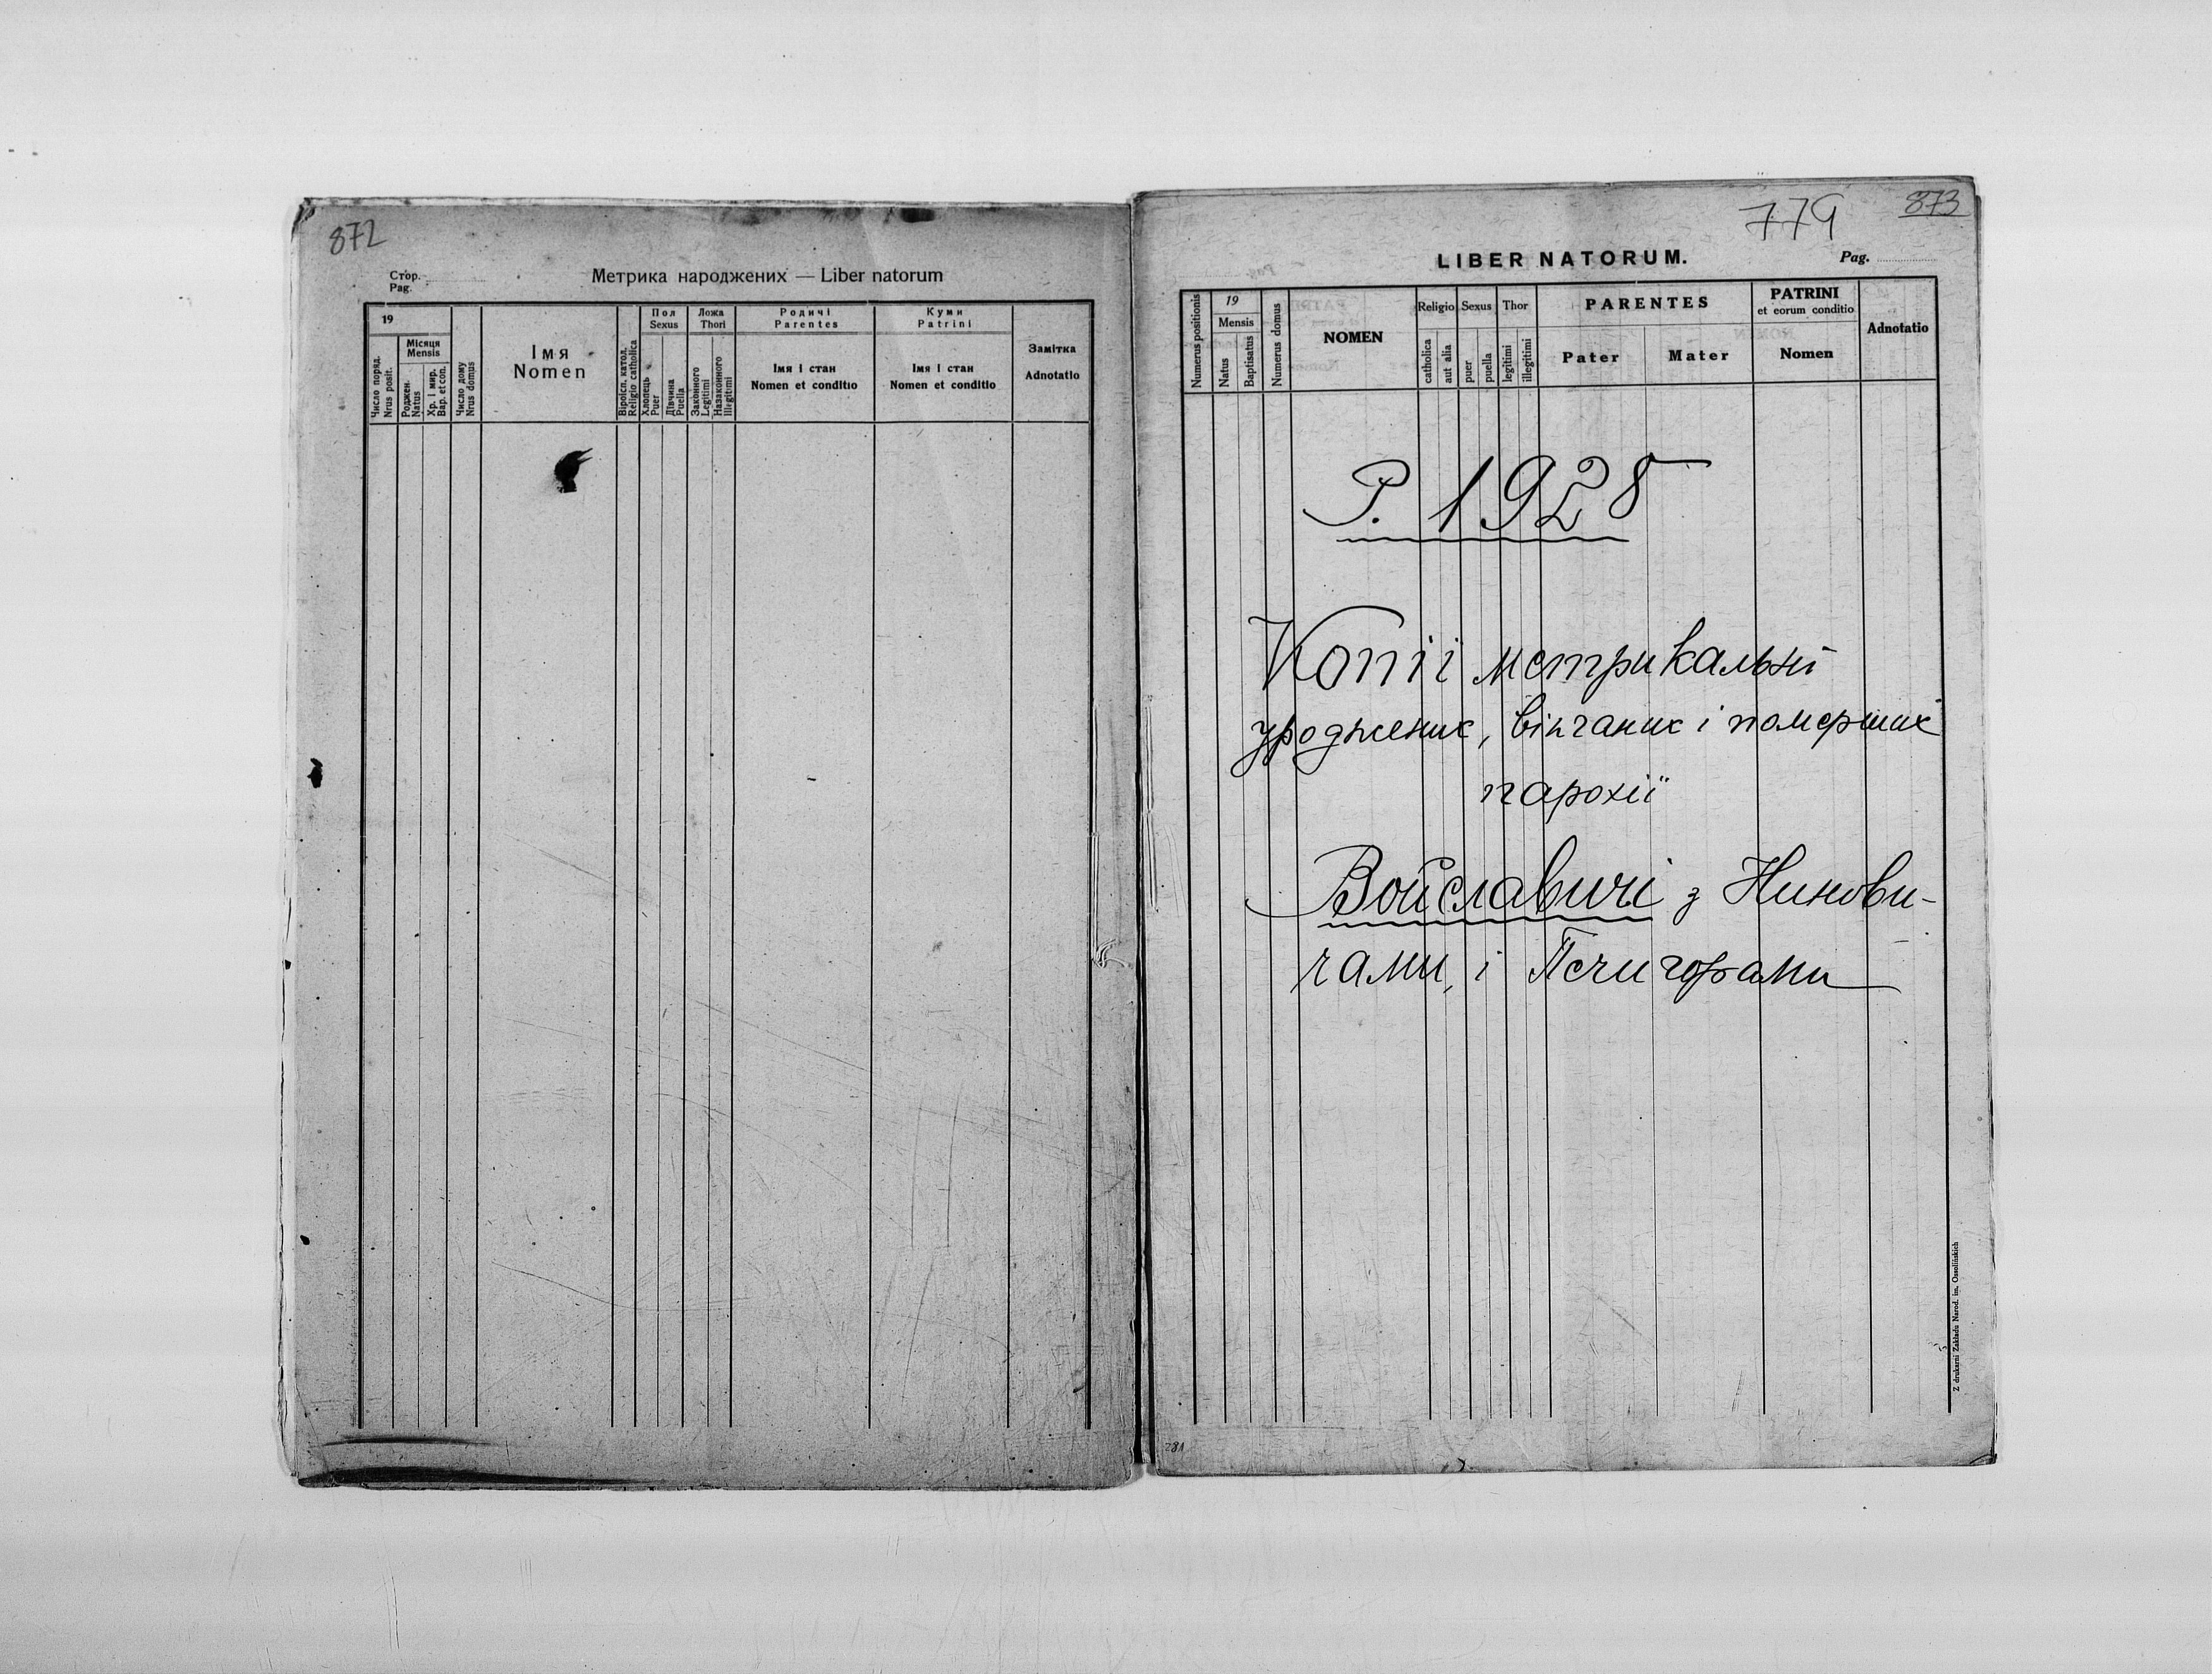 872
Стор.
Pag.
Метрика народжених — Liber natorum
19
Місяця
Mensis
Число поряд.
Nrus posit.
Роджен.
Natus
Хр. і мир.
Bap. et con.
Число дому
Nrus domus
Імя
Nomen
Віроісп. катол.
Religio catholica
Пол
Sexus
Хлопець
Puer
Дівчина
Puella
Ложа
Thori
Законного
Legitimi
Назаконного
Illegitimi
Родичі
Parentes
Імя і стан
Nomen et conditio
Куми
Patrini
Імя і стан
Nomen et conditio
Замітка
Adnotatio
779
873
LIBER NATORUM.
Pag.
Numerus positionis
19
Mensis
Natus
Baptisatus
Numerus domus
NOMEN
Religio
catholica
aut alia
Sexus
puer
puella
Thor
legitimi
illegitimi
PARENTES
Pater
Mater
PATRINI
et eorum conditio
Nomen
Adnotatio
Р. 1928
Копії метрикальні
уроджених, вінчаних і померших
парохії
Войславичі з Нинови-
чами, і Печигорами
Z drukarni Zakładu Narod. im. Ossolińskich
281